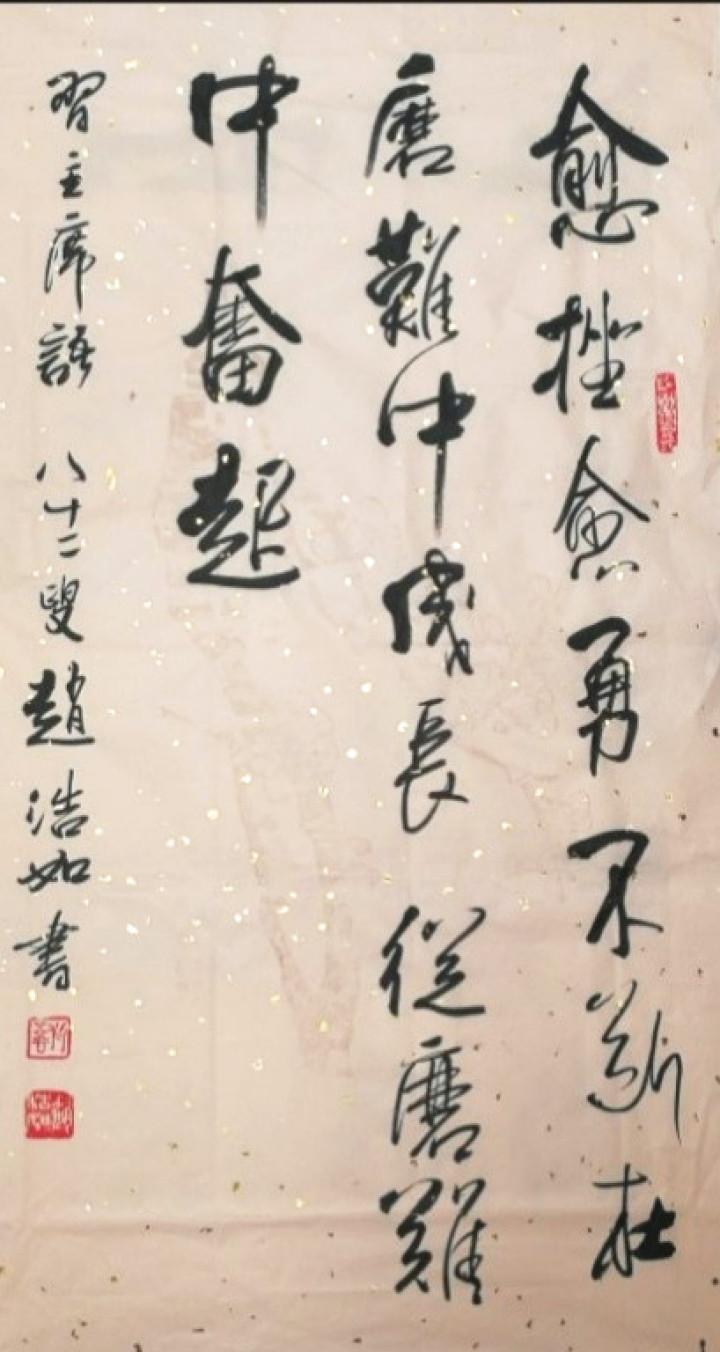 愈挫愈勇不斷在
磨難中成長從磨難
中奮起
習主席語 八十二叟趙浩如書